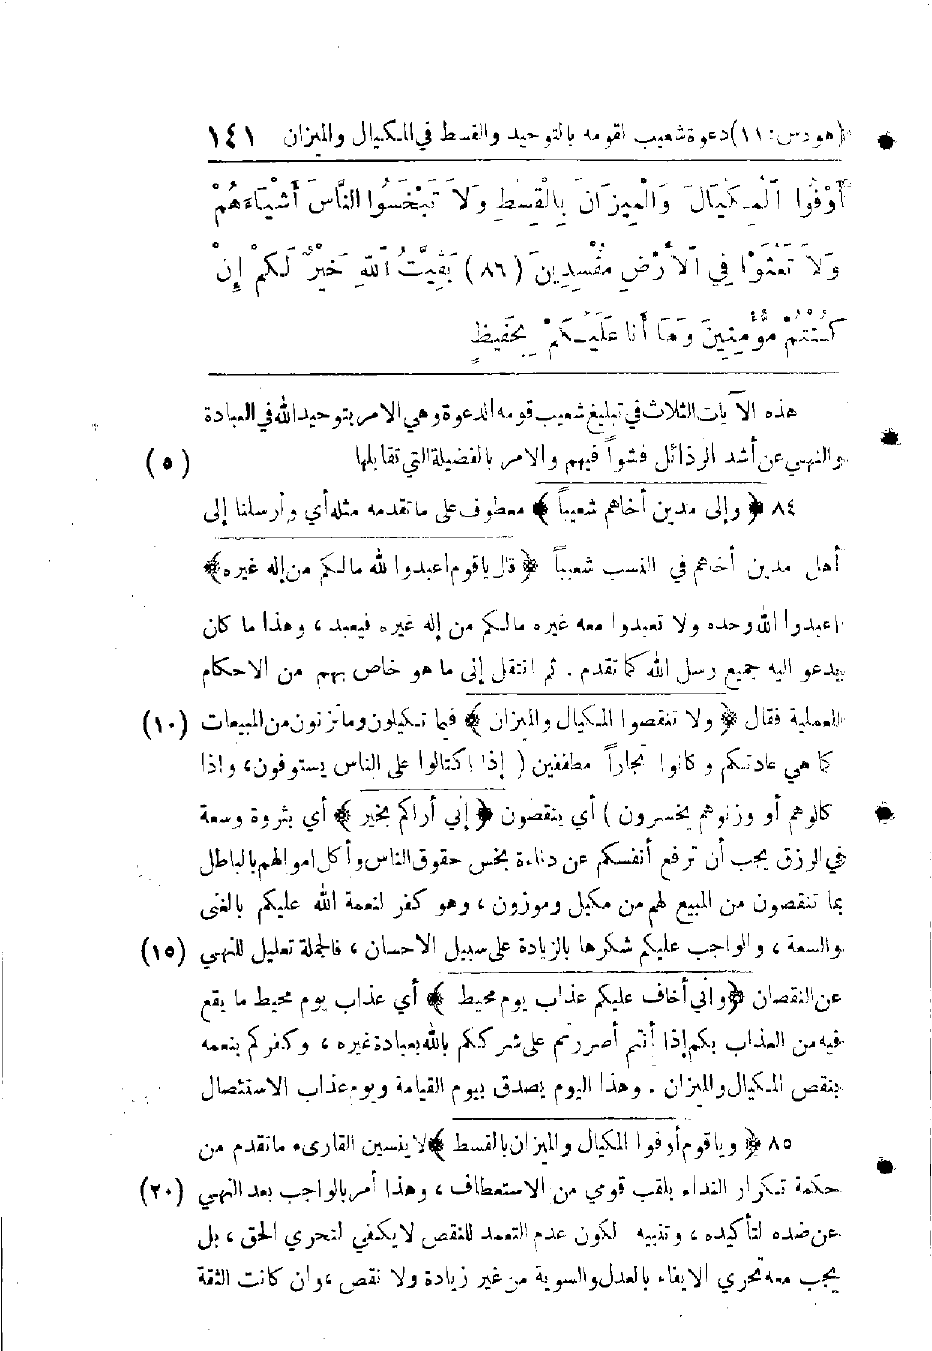 (هود س: ١١) دعوة شعيب لقومه بالتوحيد والقسط في المكيال والميزان ١٤١
أَوْفُوا الْمِكْيَالَ وَالْمِيزَانَ بِالْقِسْطِ وَلَا تَبْخَسُوا النَّاسَ أَشْيَاءَهُمْ
وَلَا تَعْثَوْا فِي الْأَرْضِ مُفْسِدِينَ (٨٦) بَقِيَّتُ اللهِ خَيْرٌ لَكُمْ إِنْ
كُنْتُمْ مُؤْمِنِينَ وَمَا أَنَا عَلَيْكُمْ بِحَفِيظٍ
هذه الآيات الثلاث في تبليغ شعيب قومه الدعوة وهي الامر بتوحيد الله في العبادة
والنهي عن أشد الرذائل فشواً فيهم والامر بالفضيلة التي تقابلها (٥)
٨٤ ﴿ وإلى مدين أخاهم شعيباً ﴾ معطوف على ما تقدمه مثله أي وأرسلنا إلى
أهل مدين أخاهم في النسب شعيباً ﴿ قال يا قوم اعبدوا لله مالكم من إله غيره ﴾
اعبدوا الله وحده ولا تعبدوا معه غيره مالكم من إله غيره فيعبد ، وهذا ما كان
يدعو اليه جميع رسل الله كما تقدم . ثم انتقل إلى ما هو خاص بهم من الاحكام
العملية فقال ﴿ ولا تنقصوا المكيال والميزان ﴾ فيما تكيلون وما تزنون من المبيعات (١٠)
كما هي عادتكم وكانوا تجاراً مطففين ( إذا اكتالوا على الناس يستوفون، وإذا
كالوهم أو وزنوهم يخسرون ) أي ينقصون ﴿ إني أراكم بخير ﴾ أي بثروة وسعة
في الرزق يجب أن ترفع أنفسكم عن دناءة بخس حقوق الناس وأكل اموالهم بالباطل
بما تنقصون من المبيع لهم من مكيل وموزون ، وهو كفر لنعمة الله عليكم بالغنى
والسعة ، والواجب عليكم شكرها بالزيادة على سبيل الاحسان ، فالجملة تعليل للنهي (١٥)
عن النقصان ﴿ وإني أخاف عليكم عذاب يوم محيط ﴾ أي عذاب يوم محيط ما يقع
فيه من العذاب بكم إذا أنتم أصررتم على شرككم بالله بعبادة غيره ، وكفركم بنعمه
بنقص المكيال والميزان . وهذا اليوم يصدق بيوم القيامة ويوم عذاب الاستئصال
٨٥ ﴿ ويا قوم أوفوا المكيال والميزان بالقسط ﴾ لا ينسين القارىء ما تقدم من
حكمة تكرار النداء بلقب قومي من الاستعطاف ، وهذا أمر بالواجب بعد النهي (٢٠)
عن ضده لتأكيده ، وتنبيه لكون عدم التعمد للنقص لا يكفي لتحري الحق ، بل
يجب معه تحري الايفاء بالعدل والسوية من غير زيادة ولا نقص ، وان كانت الثقة